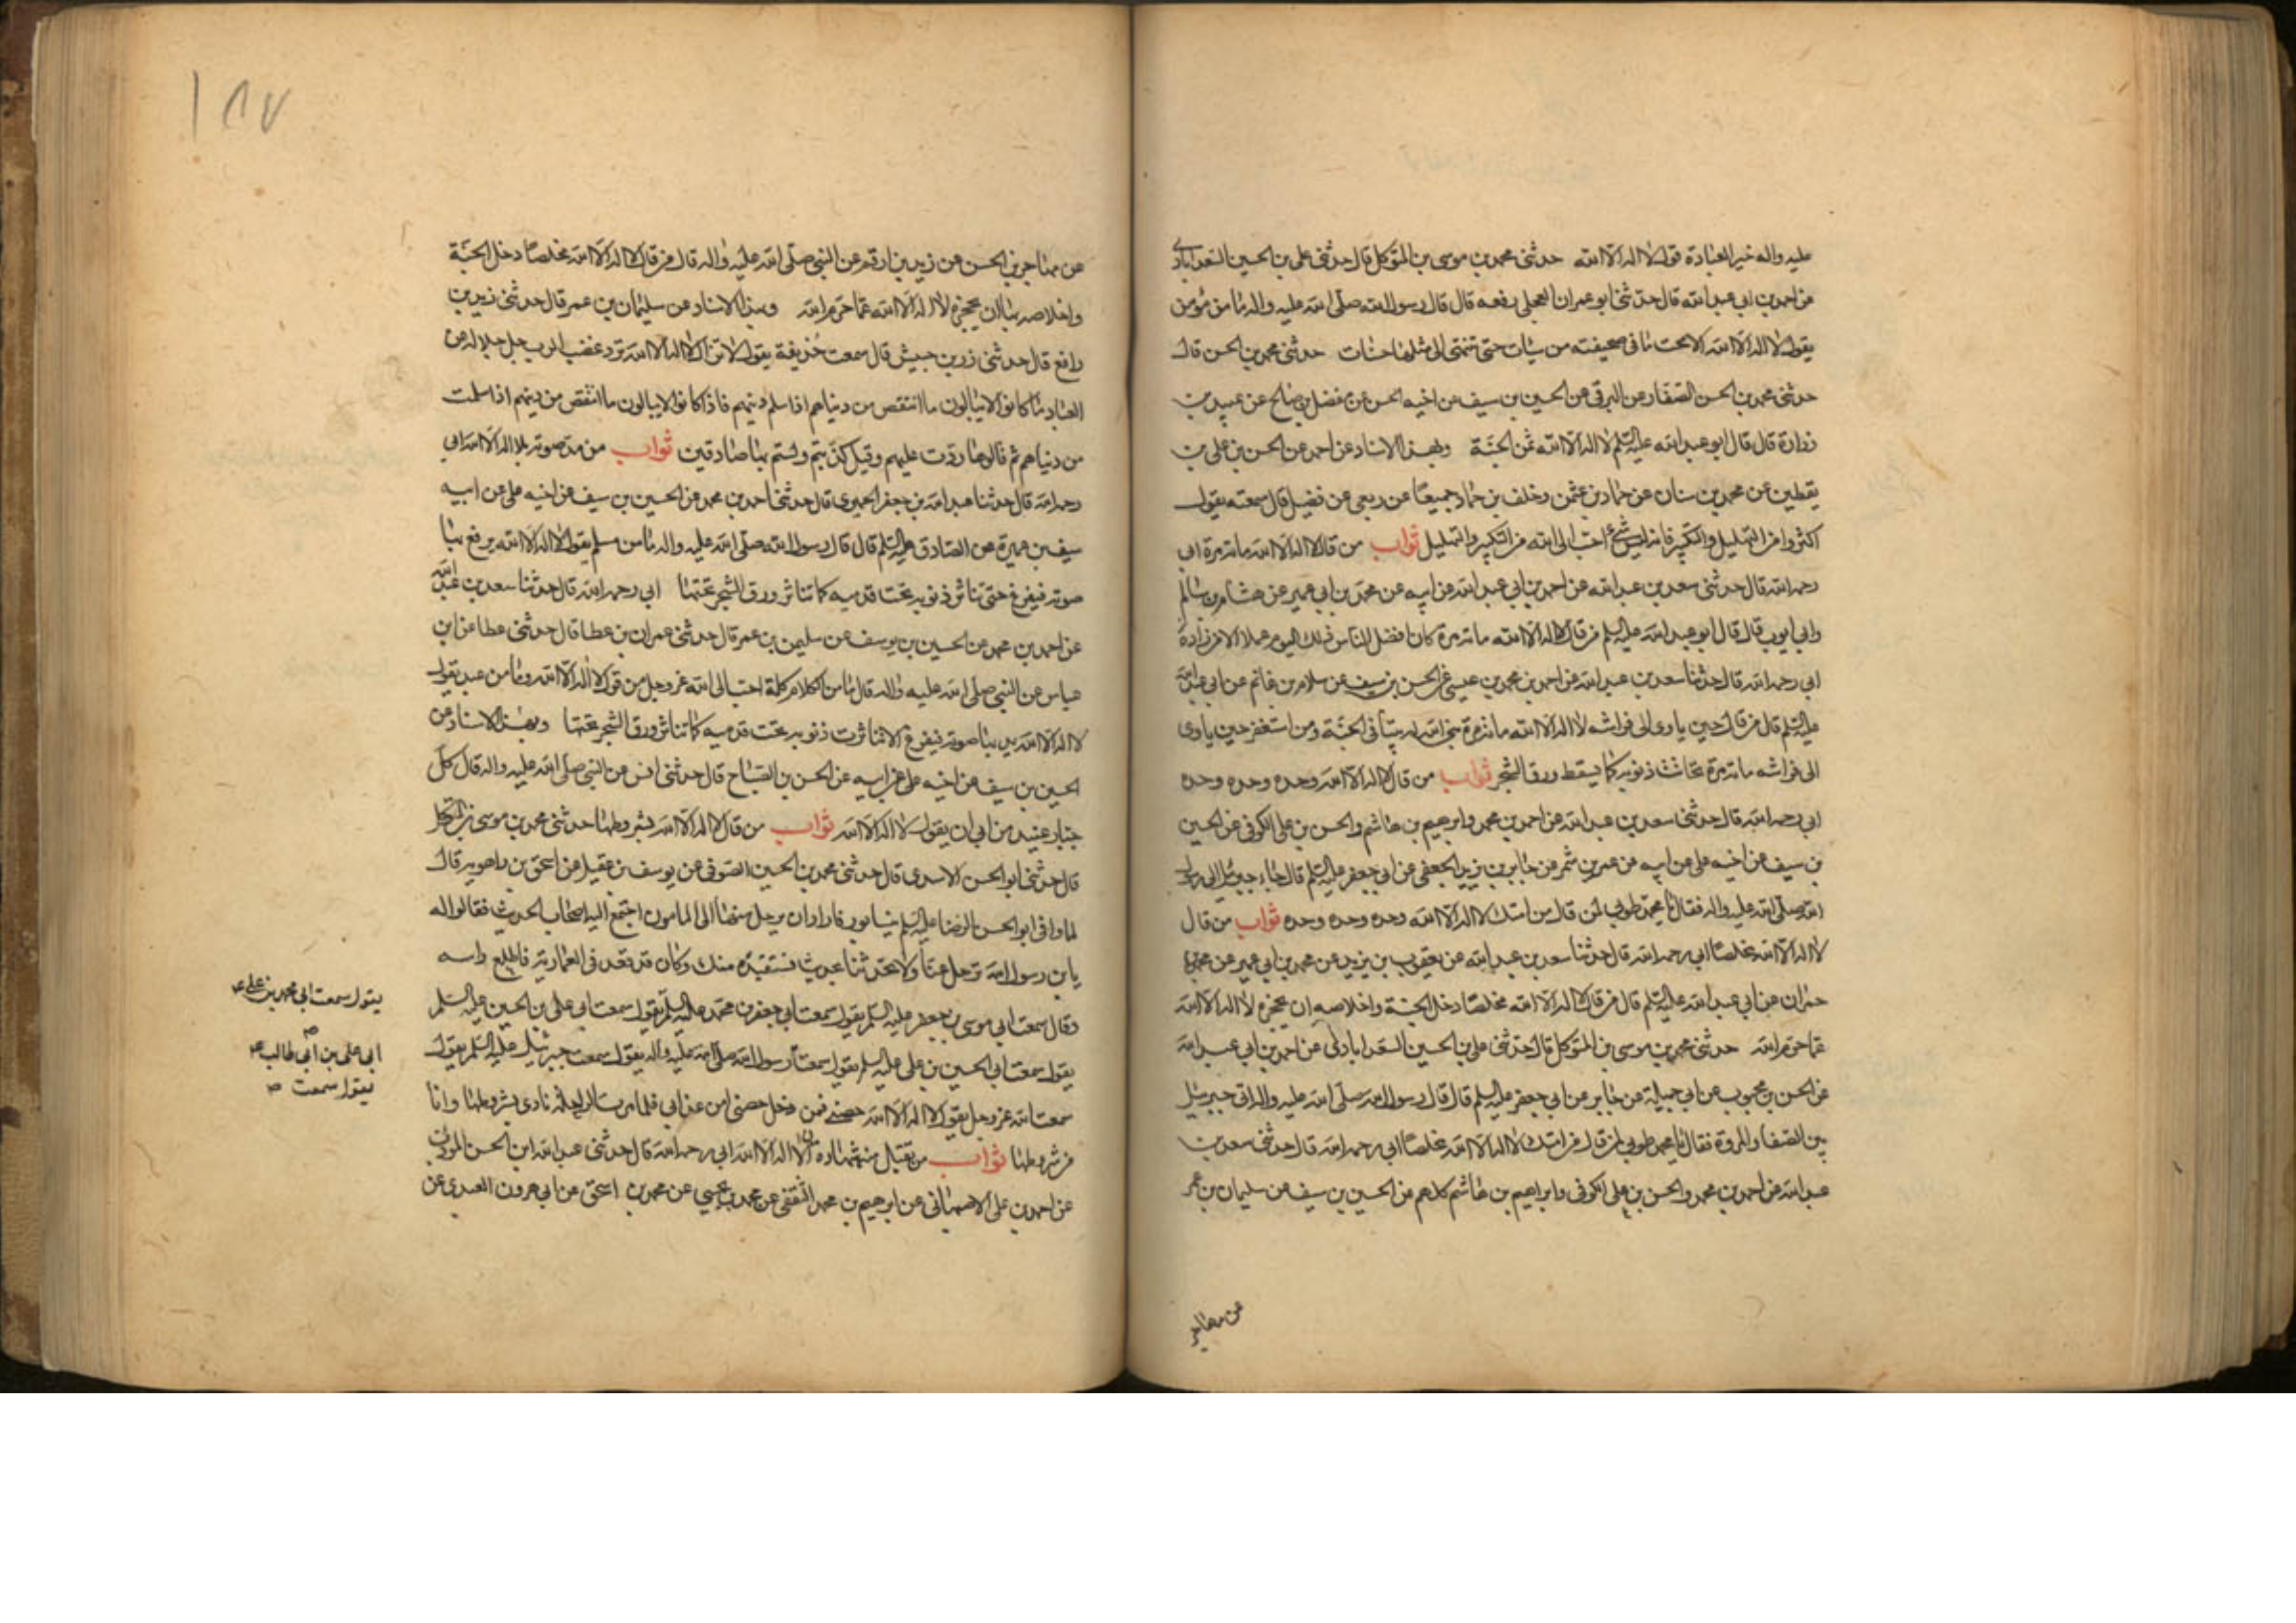 عليه واله خير العبادة قول لا اله الا الله حدثنى محمد بن موسى بن المتوكل قال حدثنى على بن الحسين السعدابادى
عن احمد بن ابى عبد الله قال حدثنى ابو عمران العجلى رفعه قال قال رسول الله صلى الله عليه واله ما من مؤمن
يقول لا اله الا الله الا محت ما فى صحيفته من سيئات حتى تنتهى الى مثلها حسنات حدثنى محمد بن الحسن قال
حدثنى محمد بن الحسن الصفار عن البرقى عن الحسين بن سيف عن اخيه الحسن عن مفضل بن صالح عن عبيد بن
زرارة قال قال ابو عبد الله عليه السلم لا اله الا الله ثمن الجنة وبهذا الاسناد عن احمد عن الحسن بن على بن
يقطين عن محمد بن سنان عن حماد بن عثمن وخلف بن حماد جميعا عن ربعى عن فضيل قال سمعته يقول
اكثروا من التهليل والتكبير فانه ليس شئ احب الى الله من التكبير والتهليل ثواب من قال لا اله الا الله مائة مرة ابى
رحمه الله قال حدثنى سعد بن عبد الله عن احمد بن ابى عبد الله عن ابيه عن محمد بن ابى عمير عن هشام بن سالم
وابى ايوب قال قال ابو عبد الله عليه السلم من قال لا اله الا الله مائة مرة كان افضل الناس ذلك اليوم عملا الا من زاده
ابى رحمه الله قال حدثنا سعد بن عبد الله عن احمد بن محمد بن عيسى عن الحسن بن سيف عن سلام بن غانم عن ابى عبد الله
عليه السلم قال من قال حين ياوى الى فراشه لا اله الا الله مائة مرة بنى الله له بيتا فى الجنة ومن استغفر حين ياوى
الى فراشه مائة مرة تحاتت ذنوبه كما يسقط ورق الشجر ثواب من قال لا اله الا الله وحده وحده وحده
ابى رحمه الله قال حدثنى سعد بن عبد الله عن احمد بن محمد وابرهيم بن هاشم والحسن بن على الكوفى عن الحسين
بن سيف عن اخيه على عن ابيه عن عمر بن شمر عن جابر بن يزيد الجعفى عن ابى جعفر عليه السلم قال جاء جبرئيل الى رسول
الله صلى الله عليه واله فقال يا محمد طوبى لمن قال من امتك لا اله الا الله وحده وحده وحده ثواب من قال
لا اله الا الله مخلصا ابى رحمه الله قال حدثنا سعد بن عبد الله عن يعقوب بن يزيد عن محمد بن ابى عمير عن محمد بن
حمران عن ابى عبد الله عليه السلم قال من قال لا اله الا الله مخلصا دخل الجنة واخلاصه ان يحجزه لا اله الا الله
عما حرم الله حدثنى محمد بن موسى بن المتوكل قال حدثنى على بن الحسين السعدابادى عن احمد بن ابى عبد الله
عن الحسن بن محبوب عن ابى جميلة عن جابر عن ابى جعفر عليه السلم قال قال رسول الله صلى الله عليه واله اتى جبرئيل
بين الصفا والمروة فقال يا محمد طوبى لمن قال من امتك لا اله الا الله مخلصا ابى رحمه الله قال حدثنى سعد بن
عبد الله عن احمد بن محمد والحسن بن على الكوفى وابراهيم بن هاشم كلهم عن الحسين بن سيف عن سليمان بن عمر
عن مهاجر
١٨٧
عن مهاجر بن الحسن عن زيد بن ارقم عن النبى صلى الله عليه واله قال من قال لا اله الا الله مخلصا دخل الجنة
واخلاصه بها ان يحجزه لا اله الا الله عما حرم الله وبهذا الاسناد عن سليمان بن عمر قال حدثنى زيد بن
رافع قال حدثنى زر بن حبيش قال سمعت حذيفة يقول لا تزال لا اله الا الله ترد غضب الرب جل جلاله عن
العباد ما كانوا لا يبالون ما انتقص من دنياهم اذا سلم دينهم فاذا كانوا لا يبالون ما انتقص من دينهم اذا سلمت
من دنياهم ثم قالوها ردت عليهم وقيل كذبتم ولستم بها صادقين ثواب من مد صوته بلا اله الا الله ابى
رحمه الله قال حدثنا عبد الله بن جعفر الحميرى قال حدثنى احمد بن محمد عن الحسين بن سيف عن اخيه على عن ابيه
سيف بن عميرة عن الصادق عليه السلم قال قال رسول الله صلى الله عليه واله ما من مسلم يقول لا اله الا الله يرفع بها
صوته فيفرغ حتى تناثر ذنوبه تحت قدميه كما تناثر ورق الشجر تحتها ابى رحمه الله قال حدثنا سعد بن عبد الله
عن احمد بن محمد عن الحسين بن يوسف عن سليمن بن عمر قال حدثنى عمران بن عطا قال حدثنى عطا عن ابن
عباس عن النبى صلى الله عليه واله قال ما من الكلام كلمة احب الى الله عز وجل من قول لا اله الا الله وما من عبد يقول
لا اله الا الله يمد بها صوته فيفرغ الا تناثرت ذنوبه تحت قدميه كما تناثر ورق الشجر تحتها وبهذا الاسناد عن
الحسين بن سيف عن اخيه على عن ابيه عن الحسن بن الصباح قال حدثنى انس عن النبى صلى الله عليه واله قال كل
جبار عنيد من ابى ان يقول لا اله الا الله ثواب من قال لا اله الا الله بشروطها حدثنى محمد بن موسى بن المتوكل
قال حدثنى ابو الحسن الاسدى قال حدثنى محمد بن الحسين الصوفى عن يوسف بن عقيل عن اسحق بن راهويه قال
لما وافى ابو الحسن الرضا عليه السلم نيسابور فاراد ان يرحل منها الى المامون اجتمع اليه اصحاب الحديث فقالوا له
يا بن رسول الله ترحل عنا ولا تحدثنا بحديث فنستفيده منك وكان قد قعد فى العمارية فاطلع راسه
وقال سمعت ابى موسى بن جعفر عليه السلم يقول سمعت ابى جعفر بن محمد عليه السلم يقول سمعت ابى على بن الحسين عليه السلم
يقول سمعت ابى الحسين بن على عليه السلم يقول سمعت رسول الله صلى الله عليه واله يقول سمعت جبرئيل عليه السلم يقول
سمعت الله عز وجل يقول لا اله الا الله حصنى فمن دخل حصنى امن عذابى فلما مرت الراحلة نادى بشروطها وانا
من شروطها ثواب من تقبل منه شهادة ان لا اله الا الله ابى رحمه الله قال حدثنى عبد الله ابن الحسن المودب
عن احمد بن على الاصبهانى عن ابرهيم بن محمد الثقفى عن محمد بن عيسى عن محمد بن اسحق عن ابى هرون العبدى عن
يقول سمعت ابى محمد بن على ع
ابى على بن ابى طالب ع
يقول سمعت ص